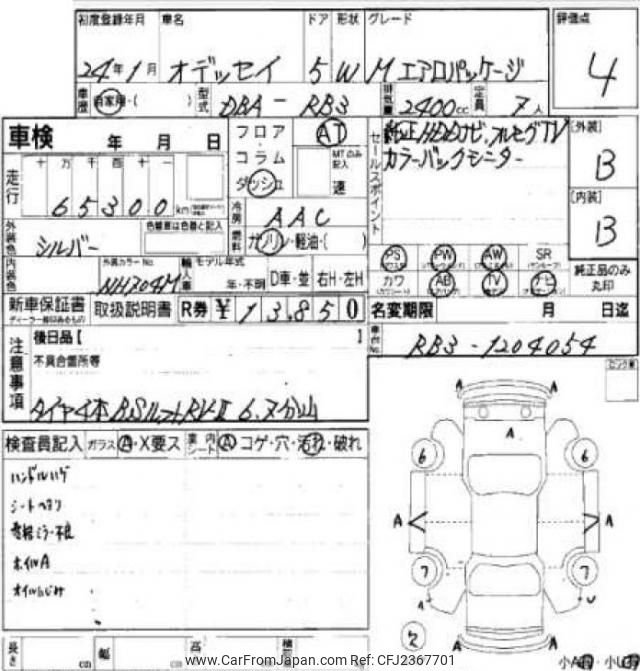 初度登録年月 車名 ドア 形状 グレード 評価点
24年1月 オデッセイ 5 W M エアロパッケージ 4
車歴 自家用・( ) 型式 DBA - RB3 排気量 2400cc 定員 7人
車検 年 月 日
フロア・コラム ダッシュ AT MTのみ記入 速
セールスポイント 純正HDDナビ、フルセグTV
カラーバックモニター
[外装] B
[内装] B
走行 十 万 千 百 十 一
65300 km
冷房 AAC
外装色 シルバー 色替車は色番と記入
燃料 ガソリン・軽油・( )
PS PW AW SR
カワ AB TV ナビ
純正品のみ丸印
内装色 外装カラーNo. NH704M 輸入車 モデル年式 年・不明 D車・並 右H・左H
新車保証書 取扱説明書 R券 ¥ 13,850
名変期限 月 日迄
注意事項 後日品【 】
不具合箇所等
車台No. RB3-1204054
タイヤ4本 BSルフトRV-Ⅱ 6.7分山
検査員記入 ガラス A・X要ス 車内シート A コゲ・穴・汚れ・破れ
ハンドルハゲ
シートヘタリ
ホイルA
オイルにじみ
A A
A
6 6
A A
7 7
A A
長さ cm 幅 cm 高
www.CarFromJapan.com Ref: CFJ2367701